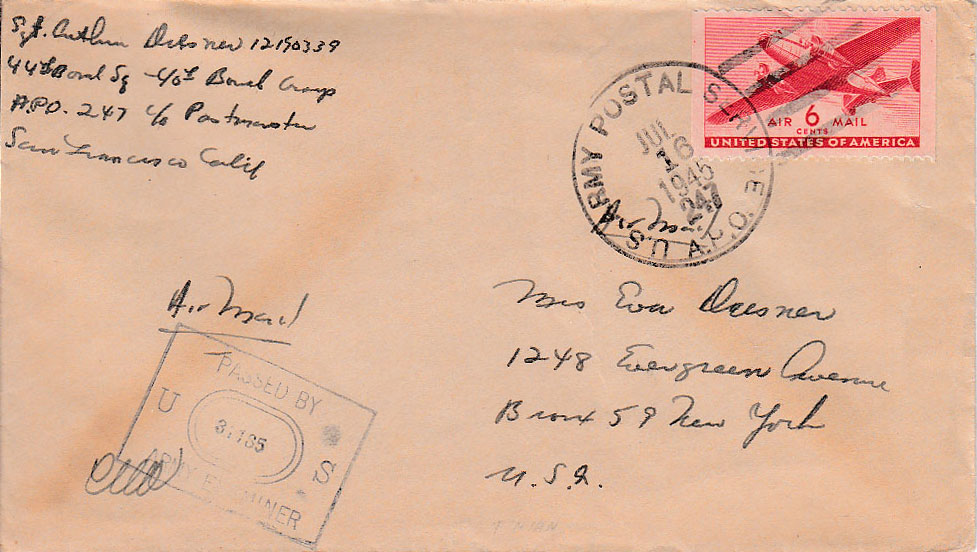 Sgt. Arthur Dresner 12190339
44th Bomb Sq - 40th Bomb Group
A.P.O. 247 c/o Postmaster
San Francisco Calif
AIR 6 MAIL
CENTS
UNITED STATES OF AMERICA
U.S. ARMY POSTAL SERVICE A.P.O.
JUL 6
PM
1945
247
Air Mail
Air Mail
Mrs Eva Dresner
1248 Evergreen Avenue
Bronx 59 New York
U.S.A.
PASSED BY
U S
ARMY EXAMINER
TINIAN